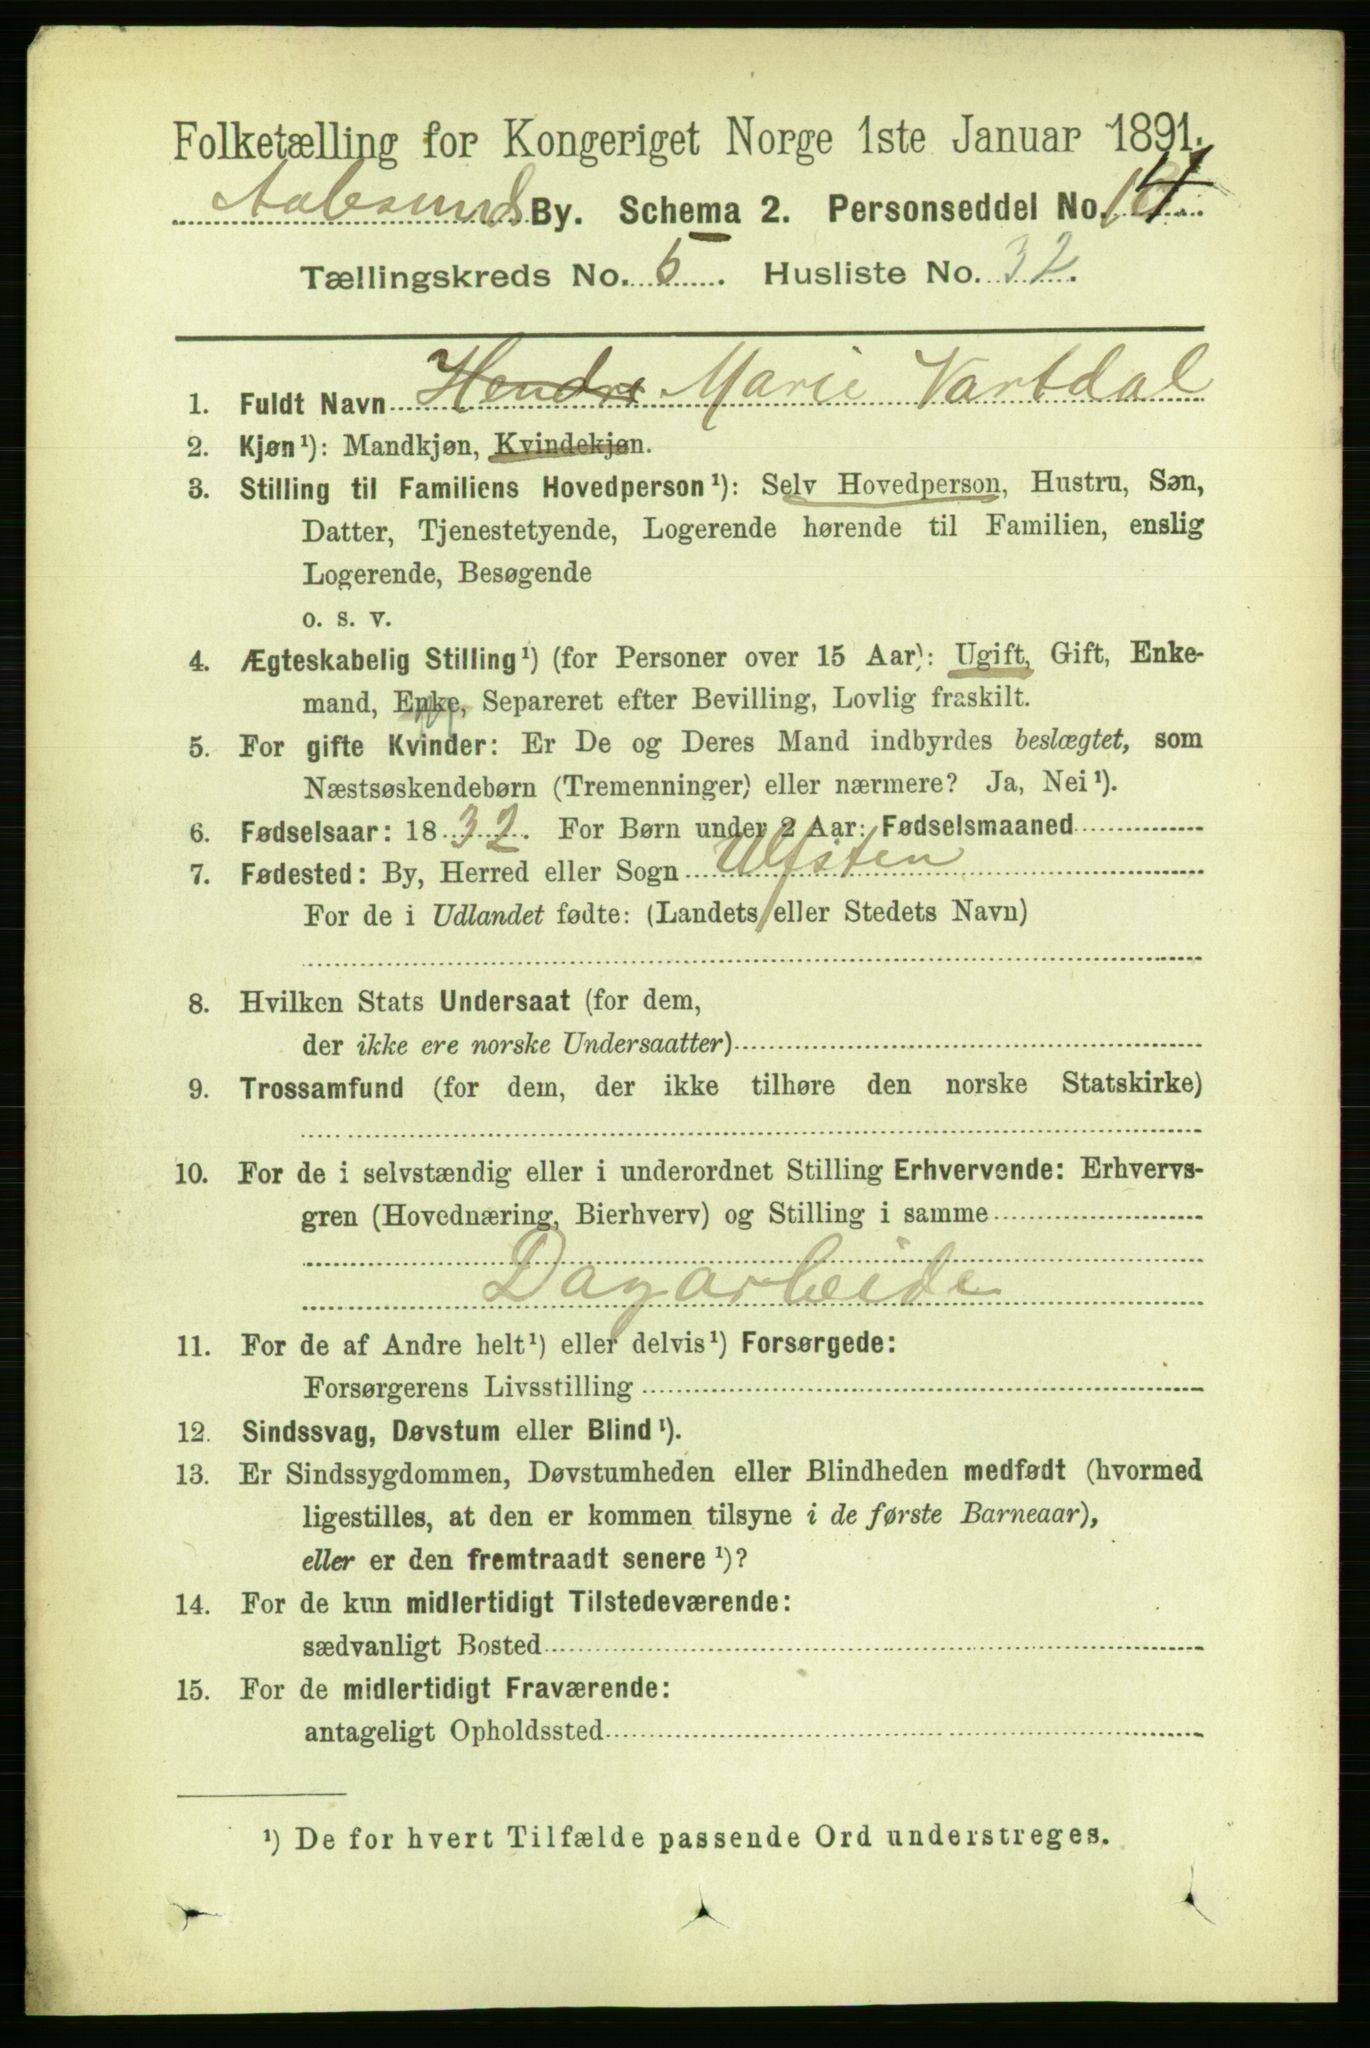 Folketælling for Kongeriget Norge 1ste Januar 1891.
Aalesunds By. Schema 2. Personseddel No. 14
Tællingskreds No. 5. Husliste No. 32.
1. Fuldt Navn Hendri Marie Vartdal
2. Kjøn¹): Mandkjøn, Kvindekjøn.
3. Stilling til Familiens Hovedperson¹): Selv Hovedperson, Hustru, Søn,
Datter, Tjenestetyende, Logerende hørende til Familien, enslig
Logerende, Besøgende
o. s. v.
4. Ægteskabelig Stilling¹) (for Personer over 15 Aar): Ugift, Gift, Enke-
mand, Enke, Separeret efter Bevilling, Lovlig fraskilt.
5. For gifte Kvinder: Er De og Deres Mand indbyrdes beslægtet, som
Næstsøskendebørn (Tremenninger) eller nærmere? Ja, Nei¹).
6. Fødselsaar: 1832. For Børn under 2 Aar: Fødselsmaaned
7. Fødested: By, Herred eller Sogn Ulfsten
For de i Udlandet fødte: (Landets eller Stedets Navn)
8. Hvilken Stats Undersaat (for dem,
der ikke ere norske Undersaatter)
9. Trossamfund (for dem, der ikke tilhøre den norske Statskirke)
10. For de i selvstændig eller i underordnet Stilling Erhvervende: Erhvervs-
gren (Hovednæring, Bierhverv) og Stilling i samme
Dagarbeide
11. For de af Andre helt¹) eller delvis¹) Forsørgede:
Forsørgerens Livsstilling
12. Sindssvag, Døvstum eller Blind¹).
13. Er Sindssygdommen, Døvstumheden eller Blindheden medfødt (hvormed
ligestilles, at den er kommen tilsyne i de første Barneaar),
eller er den fremtraadt senere¹)?
14. For de kun midlertidigt Tilstedeværende:
sædvanligt Bosted
15. For de midlertidigt Fraværende:
antageligt Opholdssted
¹) De for hvert Tilfælde passende Ord understreges.